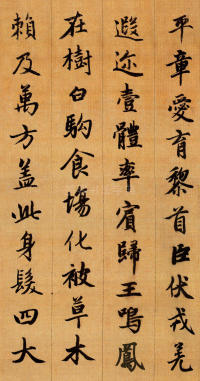 平章愛育黎首臣伏戎羌
遐迩壹體率賓歸王鳴鳳
在樹白駒食場化被草木
賴及萬方盖此身髮四大